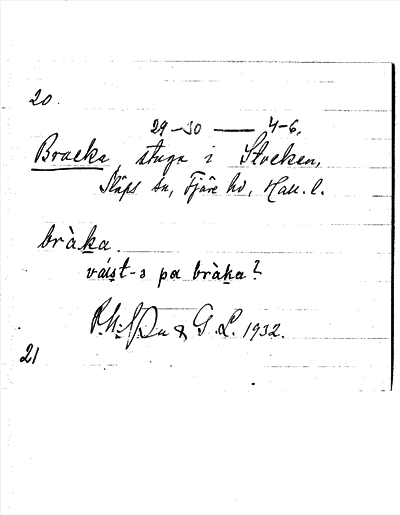 20.
29-30 — 4-6.
Bracka, stuga i Stocken,
Släps sn, Fjäre hd, Hall. l.
bràka.
váist-ɜ pa bràka?
G. L. 1932.
21